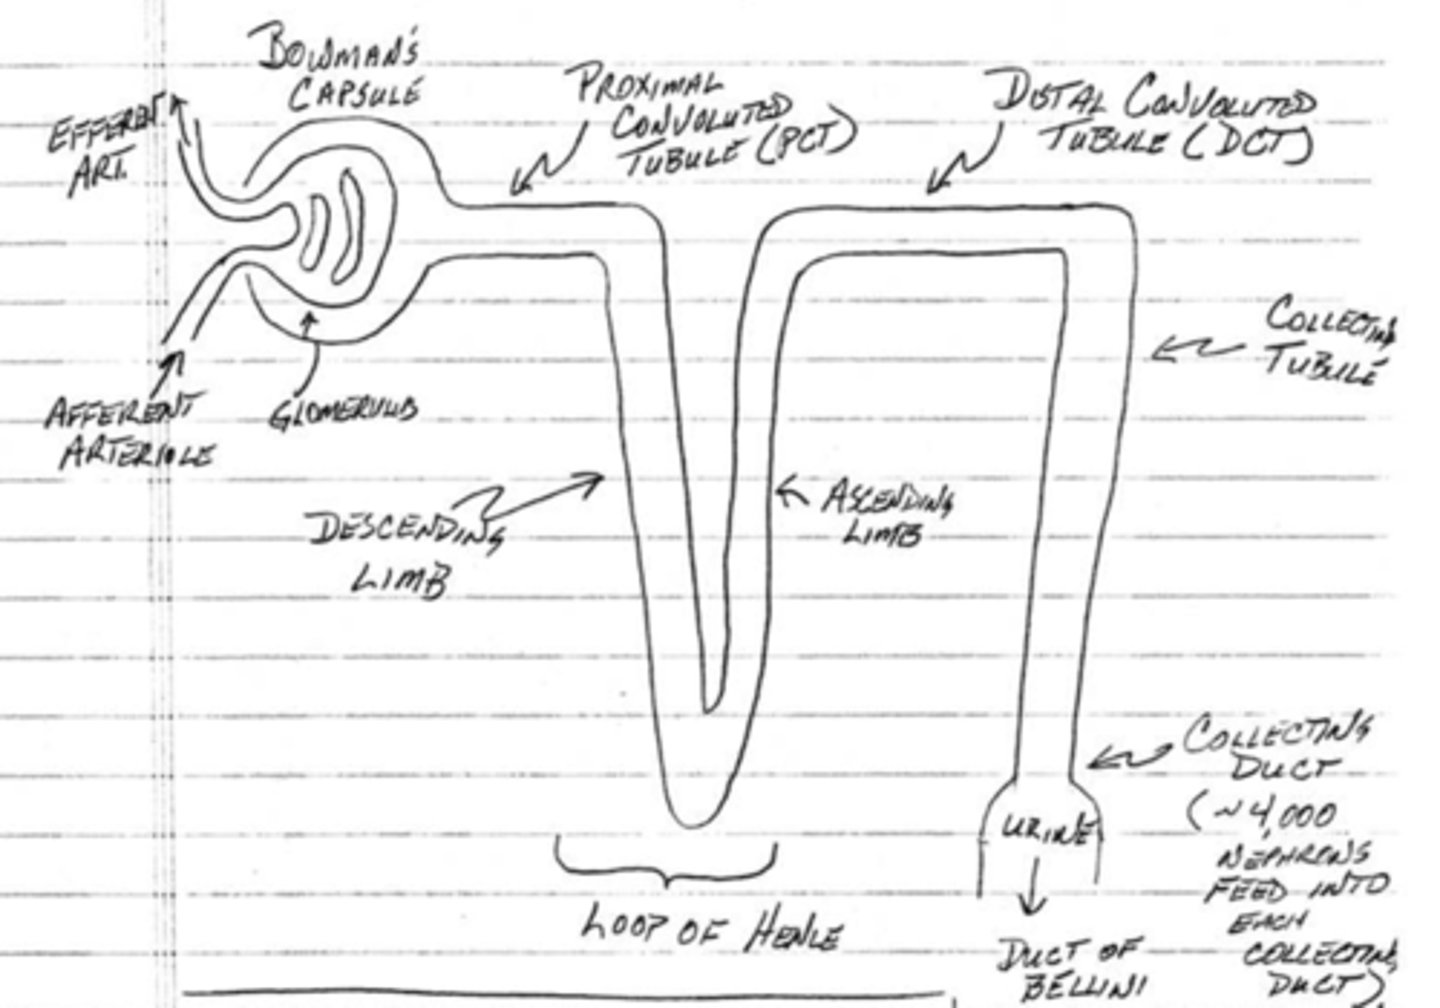 BOWMAN'S
CAPSULE
EFFERENT
ART.
PROXIMAL
CONVOLUTED
TUBULE (PCT)
DISTAL CONVOLUTED
TUBULE (DCT)
COLLECTING
TUBULE
AFFERENT
ARTERIOLE
GLOMERULUS
DESCENDING
LIMB
ASCENDING
LIMB
COLLECTING
DUCT
(~4,000
NEPHRONS
FEED INTO
EACH
COLLECTING
DUCT)
URINE
LOOP OF HENLE
DUCT OF
BELLINI